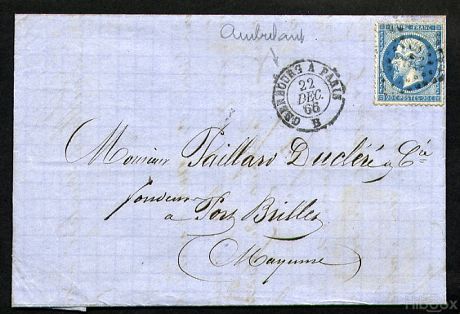 Ambulant
CHERBOURG À PARIS
22
DEC.
66
B
EMPIRE FRANC.
20 C. POSTES 20 C.
Monsieur Taillard Ducléré & Cie
fondeur
à Port Brillet
Mayenne